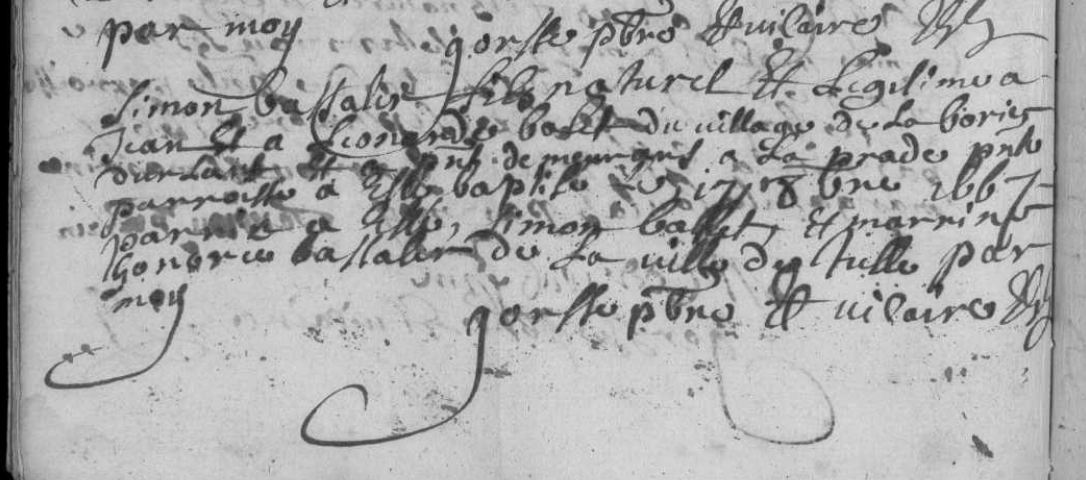 par moy gorsse pbre & viicaire
Simon bastalir filz naturel et Legitime a
Jean et a Leonarde balet du village de La borie
et de meurant a La prade pnte
parroisse a Esté baptisé le 17 8bre 1667
parrin a Esté Simon ballet, et marrine
honorée bastalir de La ville de tulle par
moy gorsse pbre et viicaire